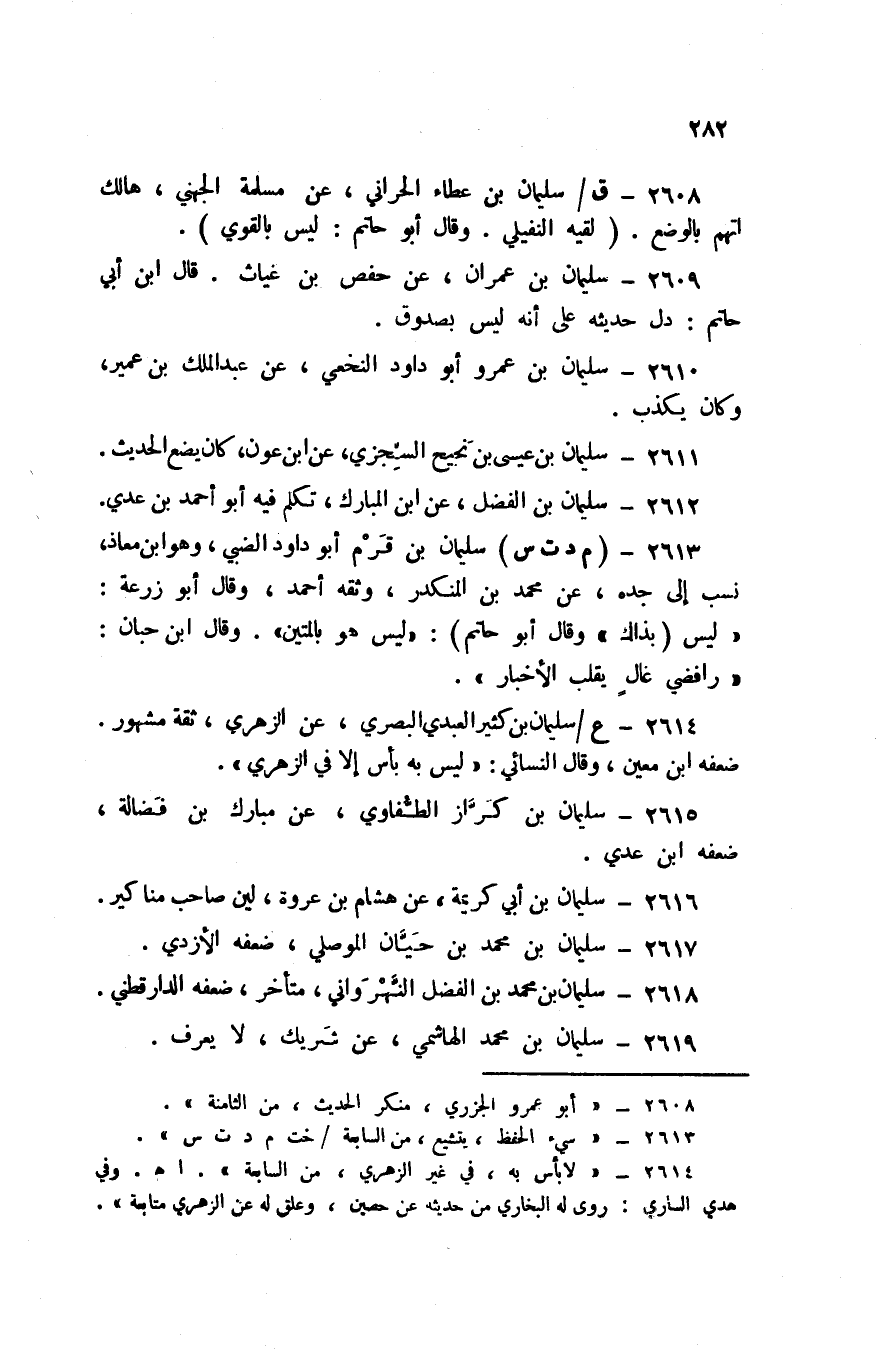 ٢٨٢
٢٦٠٨ – ق / سليمان بن عطاء الحراني ، عن مسلمة الجهني ، هالك
اتهم بالوضع . ( لقيه النفيلي . وقال أبو حاتم : ليس بالقوي ) .
٢٦٠٩ – سليمان بن عمران ، عن حفص بن غياث . قال ابن أبي
حاتم : دل حديثه على أنه ليس بصدوق .
٢٦١٠ – سليمان بن عمرو أبو داود النخعي ، عن عبدالملك بن عمير،
وكان يكذب .
٢٦١١ – سليمان بن عيسى بن نَجيح السِّجزي، عن ابن عون، كان يضع الحديث .
٢٦١٢ – سليمان بن الفضل ، عن ابن المبارك ، تكلم فيه أبو أحمد بن عدي.
٢٦١٣ – ( م د ت س ) سليمان بن قَرْم أبو داود الضبي ، وهو ابن معاذ،
نسب إلى جده ، عن محمد بن المنكدر ، وثقه أحمد ، وقال أبو زرعة :
« ليس ( بذاك » وقال أبو حاتم ) : «ليس هو بالمتين» . وقال ابن حبان :
« رافضي غالٍ يقلب الأخبار » .
٢٦١٤ – ع / سليمان بن كثير العبدي البصري ، عن الزهري ، ثقة مشهور .
ضعفه ابن معين ، وقال النسائي : « ليس به بأس إلا في الزهري » .
٢٦١٥ – سليمان بن كَرَّاز الطُّفاوي ، عن مبارك بن فَضالة ،
ضعفه ابن عدي .
٢٦١٦ – سليمان بن أبي كريمة ، عن هشام بن عروة ، لين صاحب مناكير .
٢٦١٧ – سليمان بن محمد بن حَيَّان الموصلي ، ضعفه الأزدي .
٢٦١٨ – سليمان بن محمد بن الفضل النَّهْرَواني ، متأخر ، ضعفه الدارقطني .
٢٦١٩ – سليمان بن محمد الهاشمي ، عن شَريك ، لا يعرف .
٢٦٠٨ – « أبو عمرو الجزري ، منكر الحديث ، من الثامنة » .
٢٦١٣ – « سيء الحفظ ، يتشيع ، من السابعة / خت م د ت س » .
٢٦١٤ – « لابأس به ، في غير الزهري ، من السابعة » . ا ه . وفي
هدي الساري : روى له البخاري من حديثه عن حصين ، وعلق له عن الزهري متابعة » .